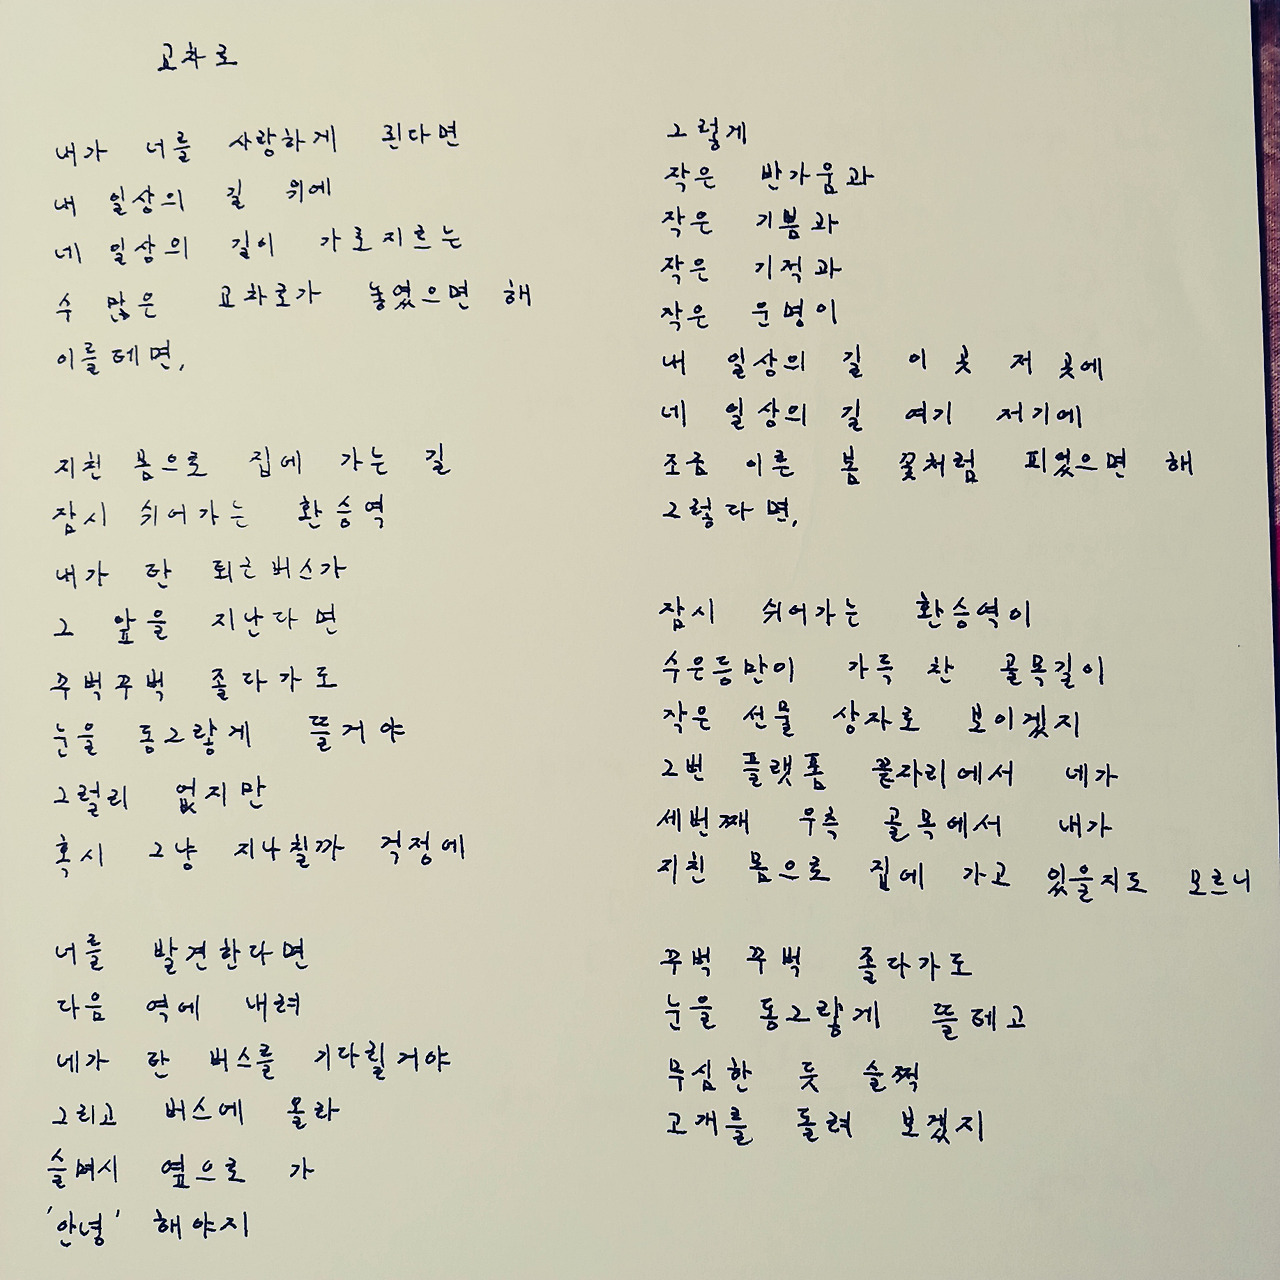 교차로
내가 너를 사랑하게 된다면
내 일상의 길 위에
네 일상의 길이 가로지르는
수 많은 교차로가 놓였으면 해
이를테면,
지친 몸으로 집에 가는 길
잠시 쉬어가는 환승역
내가 탄 퇴근버스가
그 앞을 지난다면
꾸벅꾸벅 졸다가도
눈을 동그랗게 뜰거야
그럴리 없지만
혹시 그냥 지나칠까 걱정에
너를 발견한다면
다음 역에 내려
네가 탄 버스를 기다릴거야
그리고 버스에 올라
슬며시 옆으로 가
'안녕' 해야지
그렇게
작은 반가움과
작은 기쁨과
작은 기적과
작은 운명이
내 일상의 길 이 곳 저 곳에
네 일상의 길 여기 저기에
조금 이른 봄 꽃처럼 피었으면 해
그렇다면,
잠시 쉬어가는 환승역이
수은등만이 가득 찬 골목길이
작은 선물 상자로 보이겠지
2번 플랫홈 끝자리에서 네가
세번째 우측 골목에서 내가
지친 몸으로 집에 가고 있을지도 모르니
꾸벅 꾸벅 졸다가도
눈을 동그랗게 뜰테고
무심한 듯 슬쩍
고개를 돌려 보겠지